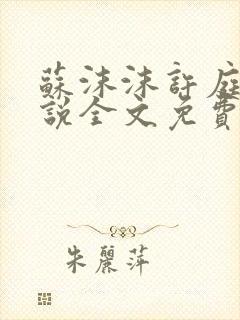 蘇沫沫許庭
說全文免費
朱麗萍